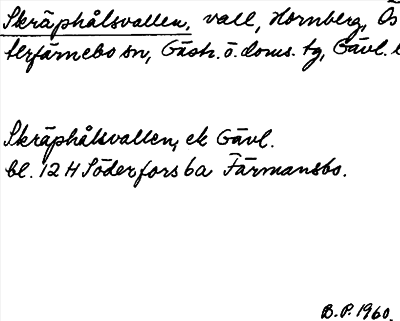 Skräphålsvallen, vall, Hornberg, Ös
terfärnebo sn, Gästr. ö. doms. tg, Gävl. l
Skräphålsvallen, ek Gävl.
bl. 12 H Söderfors 6a Färmansbo.
B.P. 1960.